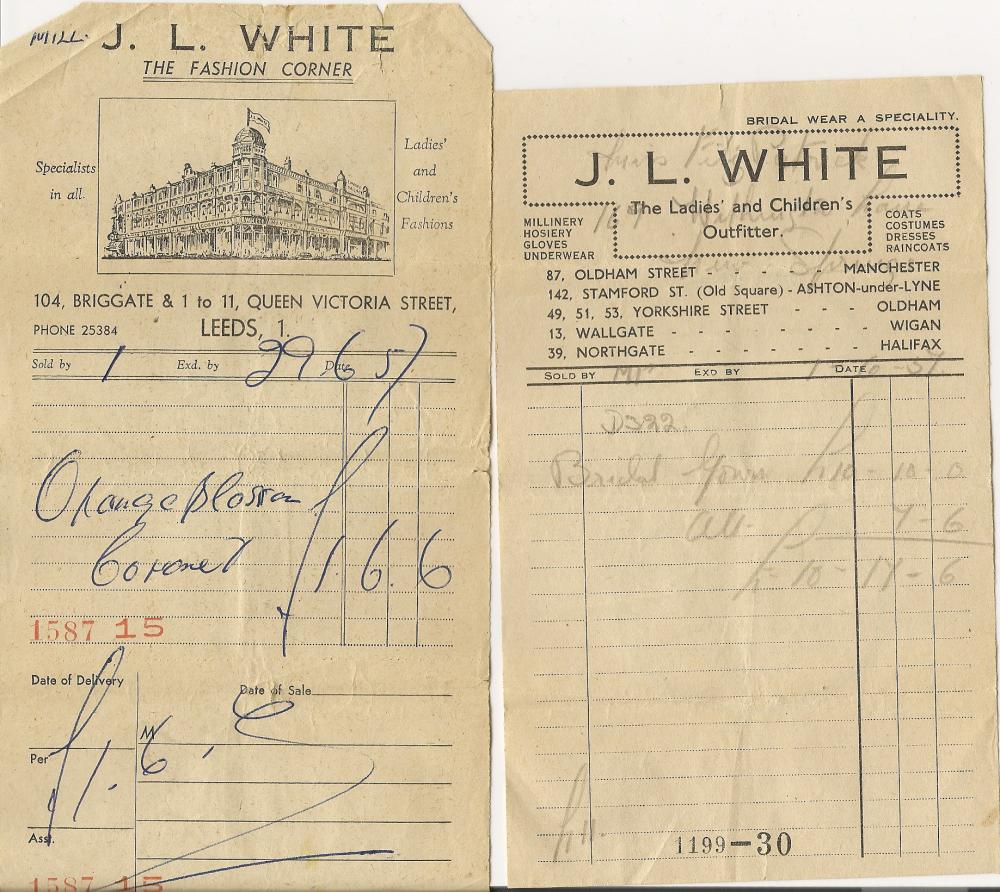 MILL.
J. L. WHITE
THE FASHION CORNER
Specialists
in all
Ladies'
and
Children's
Fashions
104, BRIGGATE & 1 to 11, QUEEN VICTORIA STREET,
PHONE 25384 LEEDS, 1.
Sold by 1 Exd. by Date 29 6 57
Orange Blossom
Coronet £1. 6. 6
1587 15
Date of Delivery
Date of Sale
M
Per
£1. 6.
Asst.
1587 15
BRIDAL WEAR A SPECIALITY.
J. L. WHITE
The Ladies' and Children's
Outfitter.
MILLINERY
HOSIERY
GLOVES
UNDERWEAR
COATS
COSTUMES
DRESSES
RAINCOATS
87, OLDHAM STREET - - - - MANCHESTER
142, STAMFORD ST. (Old Square) - ASHTON-under-LYNE
49, 51, 53, YORKSHIRE STREET - - OLDHAM
13, WALLGATE - - - - - - WIGAN
39, NORTHGATE - - - - - - HALIFAX
SOLD BY EXD BY DATE 1-6-57
D322.
Bridal Gown £10-10-0
Alt. 7-6
£10-17-6
£11.
1199-30